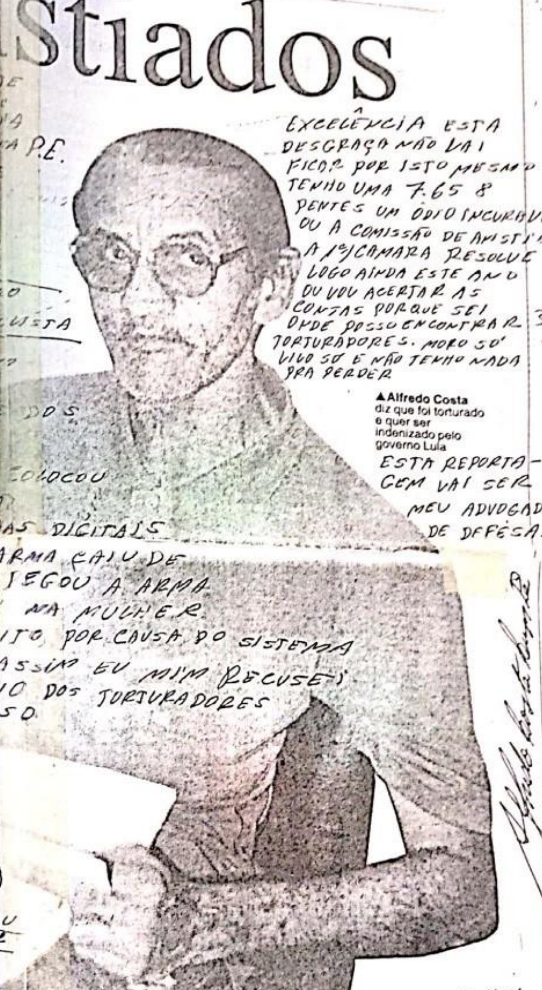 stiados
P.E.
EXCELÊNCIA ESTA
DESGRAÇA NÃO VAI
FICAR POR ISTO MESMO
TENHO UMA 7.65 8
PENTES UM ODIO INCURAV
OU A COMISSÃO DE ANISTIA
A 1ª CAMARA RESOLVE
LOGO AINDA ESTE ANO
OU VOU ACERTAR AS
CONTAS PORQUE SEI
ONDE POSSO ENCONTRAR
TORTURADORES. MORO SO'
VIVO SO E NÃO TENHO NADA
PRA PERDER
▲Alfredo Costa
diz que foi torturado
e quer ser
indenizado pelo
governo Lula
ESTA REPORTA-
GEM VAI SER
MEU ADVOGAD
DE DEFESA.
DOS
COLOCOU
AS DIGITAIS
ARMA CAIU DE
PEGOU A ARMA
NA MULHER.
ITO, POR CAUSA DO SISTEMA
ASSIM EU MIM RECUSEI
IO DOS TORTURADORES
SO